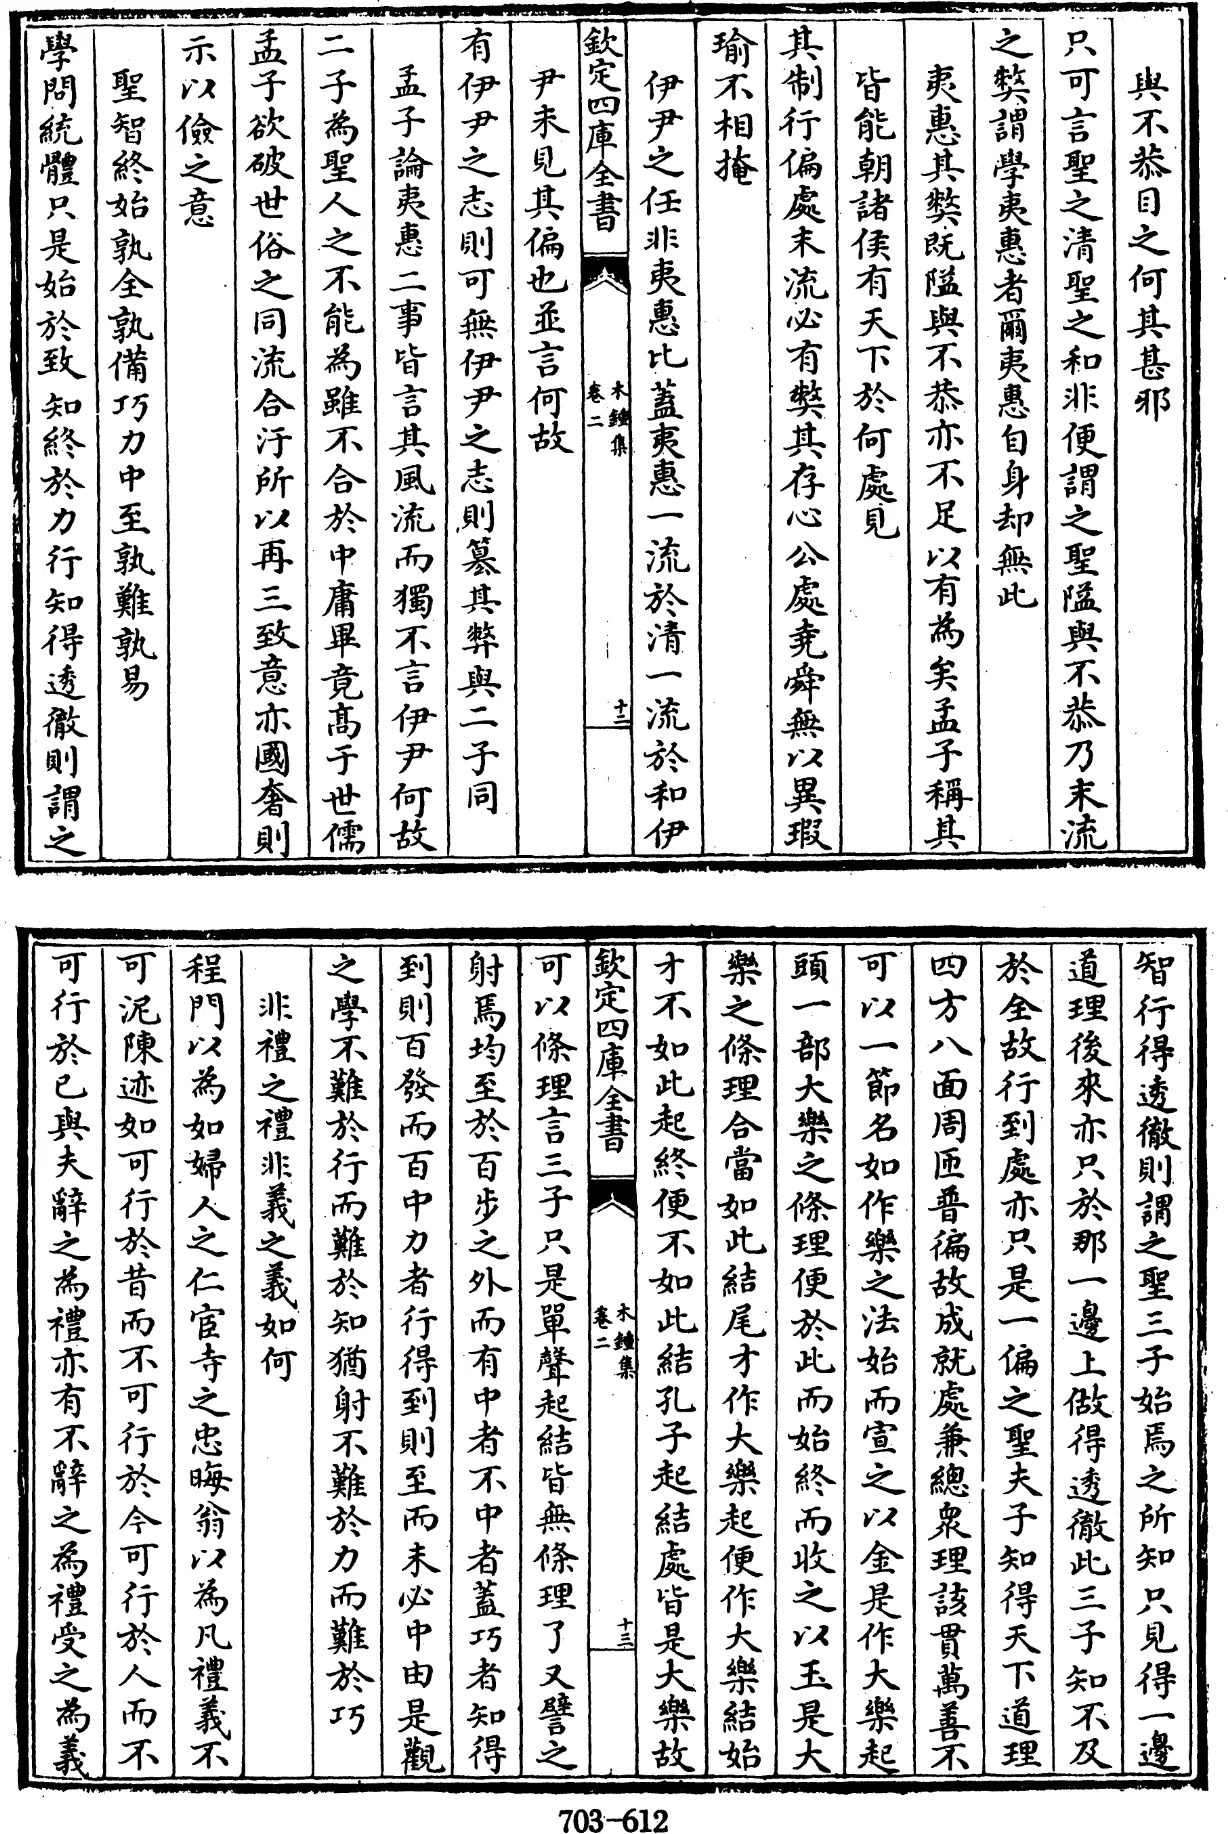 與不恭目之何其甚邪
只可言聖之清聖之和非便謂之聖隘與不恭乃末流
之獘謂學夷惠者爾夷惠自身却無此
夷惠其獘既隘與不恭亦不足以有為矣孟子稱其
皆能朝諸侯有天下於何處見
其制行偏處末流必有獘其存心公處堯舜無以異瑕
瑜不相掩
伊尹之任非夷惠比蓋夷惠一流於清一流於和伊
欽定四庫全書
木鐘集
卷二
十二
尹未見其偏也並言何故
有伊尹之志則可無伊尹之志則篡其弊與二子同
孟子論夷惠二事皆言其風流而獨不言伊尹何故
二子為聖人之不能為雖不合於中庸畢竟高于世儒
孟子欲破世俗之同流合汙所以再三致意亦國奢則
示以儉之意
聖智終始孰全孰備巧力中至孰難孰易
學問統體只是始於致知終於力行知得透徹則謂之
智行得透徹則謂之聖三子始焉之所知只見得一邊
道理後來亦只於那一邊上做得透徹此三子知不及
於全故行到處亦只是一偏之聖夫子知得天下道理
四方八面周匝普徧故成就處兼總衆理該貫萬善不
可以一節名如作樂之法始而宣之以金是作大樂起
頭一部大樂之條理便於此而始終而收之以玉是大
樂之條理合當如此結尾才作大樂起便作大樂結始
才不如此起終便不如此結孔子起結處皆是大樂故
欽定四庫全書
木鐘集
卷二
十三
可以條理言三子只是單聲起結皆無條理了又譬之
射焉均至於百步之外而有中者不中者蓋巧者知得
到則百發而百中力者行得到則至而未必中由是觀
之學不難於行而難於知猶射不難於力而難於巧
非禮之禮非義之義如何
程門以為如婦人之仁宦寺之忠晦翁以為凡禮義不
可泥陳迹如可行於昔而不可行於今可行於人而不
可行於已與夫辭之為禮亦有不辭之為禮受之為義
703-612